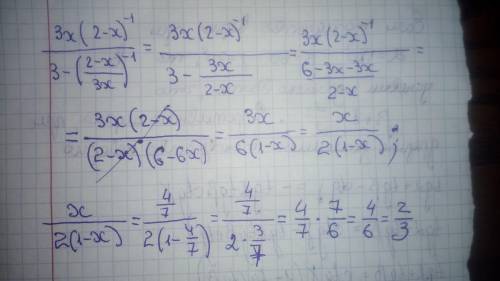 \frac{3x(2-x)^{-1}}{3-\left(\frac{2-x}{3x}\right)^{-1}} = \frac{3x(2-x)^{-1}}{3-\frac{3x}{2-x}} = \frac{3x(2-x)^{-1}}{\frac{6-3x-3x}{2-x}} =
= \frac{3x(2-x)}{(2-x)(6-6x)} = \frac{3x}{6(1-x)} = \frac{x}{2(1-x)};
\frac{x}{2(1-x)} = \frac{\frac{4}{7}}{2(1-\frac{4}{7})} = \frac{\frac{4}{7}}{2\cdot\frac{3}{7}} = \frac{4}{7}\cdot\frac{7}{6} = \frac{4}{6} = \frac{2}{3}